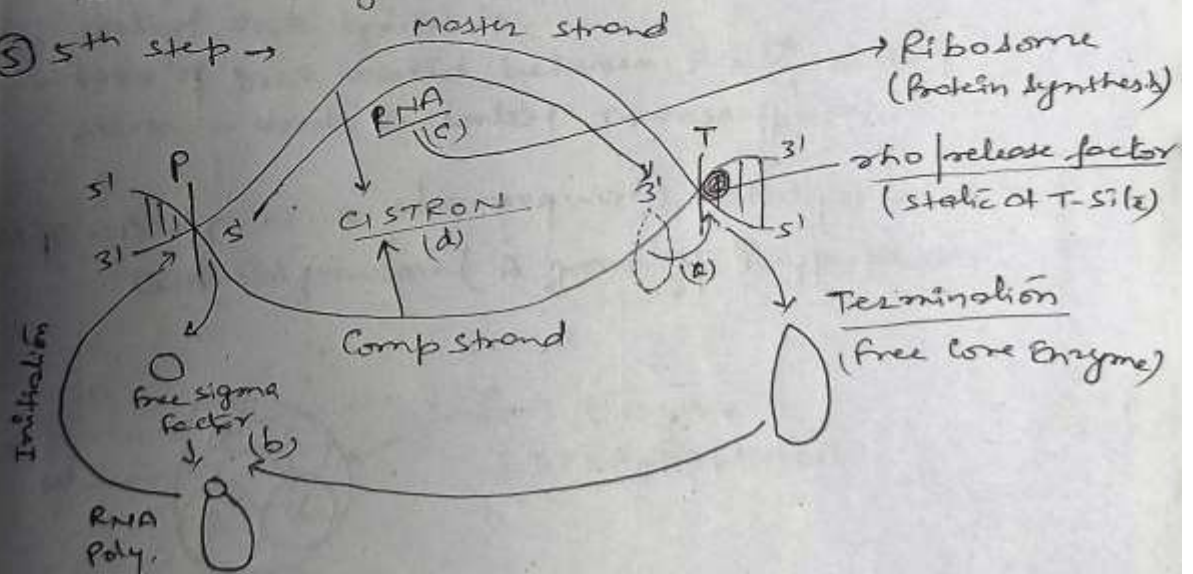 ⑤ 5th step →
Master strand
Ribosome
(Protein synthesis)
RNA
(c)
P
T
5'
3'
5'
3'
3'
5'
rho/release factor
(static at T-Site)
CISTRON
(d)
(a)
Termination
(free core Enzyme)
Comp strand
Initiation
free sigma
factor
(b)
RNA
Poly.